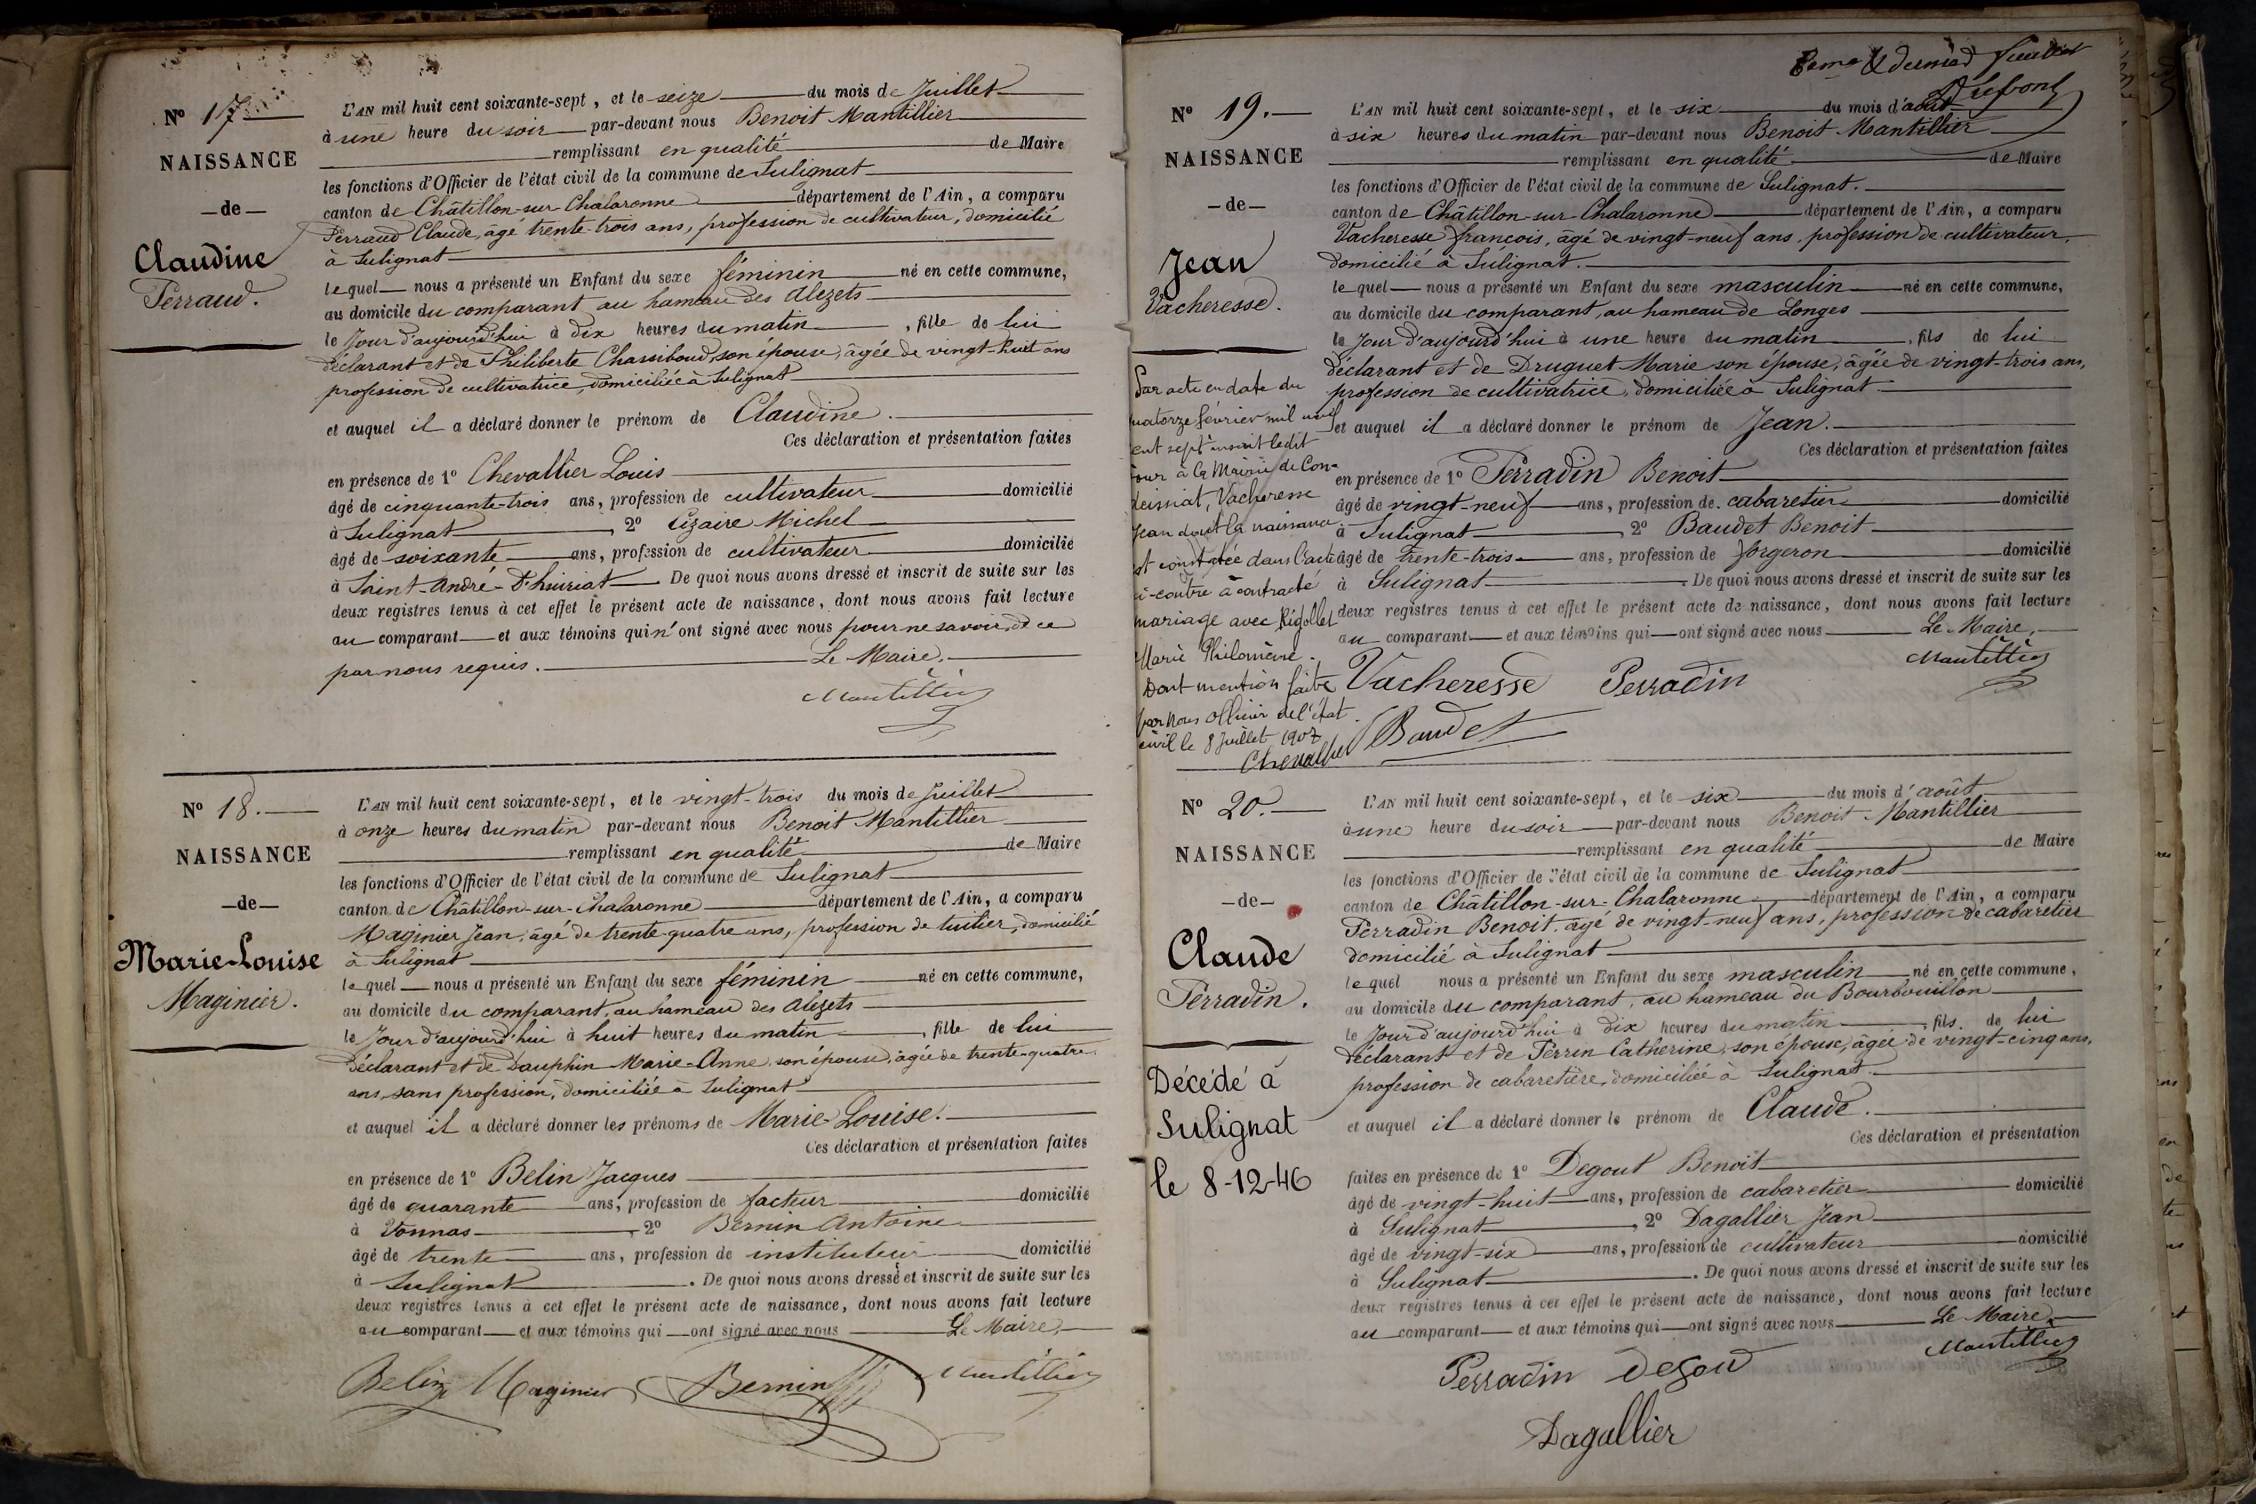 N° 17
NAISSANCE
—de—
Claudine
Perraud.
L'AN mil huit cent soixante-sept, et le seize du mois de Juillet
à une heure du soir par-devant nous Benoit Mantillier
remplissant en qualité de Maire
les fonctions d'Officier de l'état civil de la commune de Sulignat
canton de Châtillon-sur-Chalaronne département de l'Ain, a comparu
Perraud Claude, âgé trente-trois ans, profession de cultivateur, domicilié
à Sulignat
lequel nous a présenté un Enfant du sexe féminin né en cette commune,
au domicile du comparant au hameau des Alézets
le Jour d'aujourd'hui à dix heures du matin, fille de lui
déclarant et de Philiberte Chassiboud, son épouse, âgée de vingt-huit ans
profession de cultivatrice, domiciliée à Sulignat
et auquel il a déclaré donner le prénom de Claudine.
Ces déclaration et présentation faites
en présence de 1° Chevallier Louis
âgé de cinquante-trois ans, profession de cultivateur domicilié
à Sulignat, 2° Cizaire Michel
âgé de soixante ans, profession de cultivateur domicilié
à Saint-André-D'huiriat De quoi nous avons dressé et inscrit de suite sur les
deux registres tenus à cet effet le présent acte de naissance, dont nous avons fait lecture
au comparant et aux témoins qui n'ont signé avec nous pour ne savoir, de ce
par nous requis. Le Maire,
Mantillier
N° 18.
NAISSANCE
—de—
Marie-Louise
Maginier.
L'AN mil huit cent soixante-sept, et le vingt-trois du mois de Juillet
à onze heures du matin par-devant nous Benoit Mantillier
remplissant en qualité de Maire
les fonctions d'Officier de l'état civil de la commune de Sulignat
canton de Châtillon-sur-Chalaronne département de l'Ain, a comparu
Maginier Jean, âgé de trente-quatre ans, profession de tuilier, domicilié
à Sulignat
lequel nous a présenté un Enfant du sexe féminin né en cette commune,
au domicile du comparant, au hameau des Alézets
le Jour d'aujourd'hui à huit heures du matin, fille de lui
déclarant et de Dauphin Marie-Anne, son épouse, âgée de trente-quatre
ans, sans profession, domiciliée à Sulignat
et auquel il a déclaré donner les prénoms de Marie-Louise.
Ces déclaration et présentation faites
en présence de 1° Belin Jacques
âgé de quarante ans, profession de facteur domicilié
à Vonnas, 2° Bernin Antoine
âgé de trente ans, profession de instituteur domicilié
à Sulignat. De quoi nous avons dressé et inscrit de suite sur les
deux registres tenus à cet effet le présent acte de naissance, dont nous avons fait lecture
au comparant et aux témoins qui ont signé avec nous Le Maire,
Belin Maginier Bernin Mantillier
8eme & dernier feuillet
N° 19.
NAISSANCE
—de—
Jean
Vacheresse.
Par acte en date du
quatorze février mil neuf
cent sept inscrit ledit
jour à la Mairie de Con-
deissiat, Vacheresse
Jean dont la naissance
est constatée dans l'acte
ci-contre à contracté
mariage avec Rigollet
Marie Philomène.
Dont mention faite
par nous officier de l'état
civil le 8 Juillet 1907
Chevallier
L'AN mil huit cent soixante-sept, et le six du mois d'août
à six heures du matin par-devant nous Benoit Mantillier
remplissant en qualité de Maire
les fonctions d'Officier de l'état civil de la commune de Sulignat.
canton de Châtillon-sur-Chalaronne département de l'Ain, a comparu
Vacheresse françois, âgé de vingt-neuf ans, profession de cultivateur,
domicilié à Sulignat.
lequel nous a présenté un Enfant du sexe masculin né en cette commune,
au domicile du comparant, au hameau de Longes
le Jour d'aujourd'hui à une heure du matin, fils de lui
déclarant et de Druguet Marie son épouse, âgée de vingt-trois ans,
profession de cultivatrice, domiciliée à Sulignat
et auquel il a déclaré donner le prénom de Jean.
Ces déclaration et présentation faites
en présence de 1° Perradin Benoit
âgé de vingt-neuf ans, profession de cabaretier domicilié
à Sulignat, 2° Baudet Benoit
âgé de trente-trois ans, profession de forgeron domicilié
à Sulignat. De quoi nous avons dressé et inscrit de suite sur les
deux registres tenus à cet effet le présent acte de naissance, dont nous avons fait lecture
au comparant et aux témoins qui ont signé avec nous Le Maire,
Mantillier
Vacheresse Perradin
Baudet
N° 20.
NAISSANCE
—de—
Claude
Perradin.
Décédé à
Sulignat
le 8-12-46
L'AN mil huit cent soixante-sept, et le six du mois d'août
à une heure du soir par-devant nous Benoit Mantillier
remplissant en qualité de Maire
les fonctions d'Officier de l'état civil de la commune de Sulignat
canton de Châtillon-sur-Chalaronne département de l'Ain, a comparu
Perradin Benoit, âgé de vingt-neuf ans, profession de cabaretier
domicilié à Sulignat
lequel nous a présenté un Enfant du sexe masculin né en cette commune,
au domicile du comparant, au hameau du Bourbouillon
le Jour d'aujourd'hui à dix heures du matin, fils de lui
déclarant et de Perrin Catherine, son épouse, âgée de vingt-cinq ans,
profession de cabaretière, domiciliée à Sulignat.
et auquel il a déclaré donner le prénom de Claude.
Ces déclaration et présentation
faites en présence de 1° Degout Benoit
âgé de vingt-huit ans, profession de cabaretier domicilié
à Sulignat, 2° Dagallier Jean
âgé de vingt-six ans, profession de cultivateur domicilié
à Sulignat. De quoi nous avons dressé et inscrit de suite sur les
deux registres tenus à cet effet le présent acte de naissance, dont nous avons fait lecture
au comparant et aux témoins qui ont signé avec nous Le Maire,
Mantillier
Perradin Degout
Dagallier